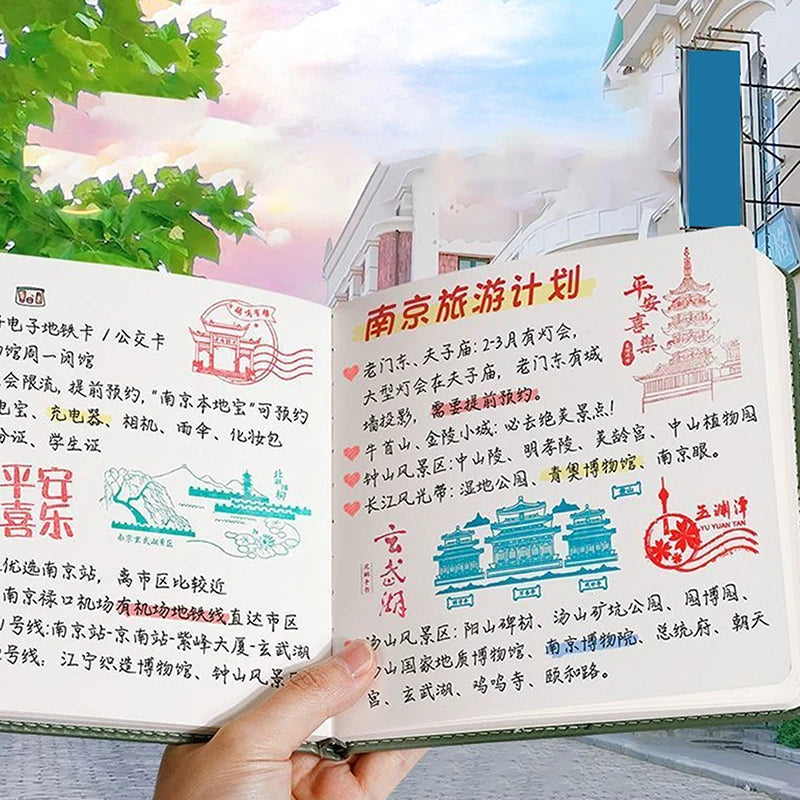 电子地铁卡 / 公交卡
馆周一闭馆
会限流, 提前预约, "南京本地宝"可预约
电宝、充电器、相机、雨伞、化妆包
分证、学生证
平安
喜乐
南京玄武湖景区
优选南京站, 离市区比较近
南京禄口机场有机场地铁线直达市区
号线:南京站-京南站-紫峰大厦-玄武湖
号线: 江宁织造博物馆、钟山风景区
南京旅游计划
平安喜樂
老门东、夫子庙: 2-3月有灯会,
大型灯会在夫子庙, 老门东有城
墙投影, 需要提前预约。
牛首山、金陵小城: 必去绝美景点!
钟山风景区: 中山陵、明孝陵、美龄宫、中山植物园
长江风光带: 湿地公园、青奥博物馆、南京眼。
玄武湖
玉渊潭
YU YUAN TAN
汤山风景区: 阳山碑材、汤山矿坑公园、园博园、
山国家地质博物馆、南京博物院、总统府、朝天
宫、玄武湖、鸡鸣寺、颐和路。